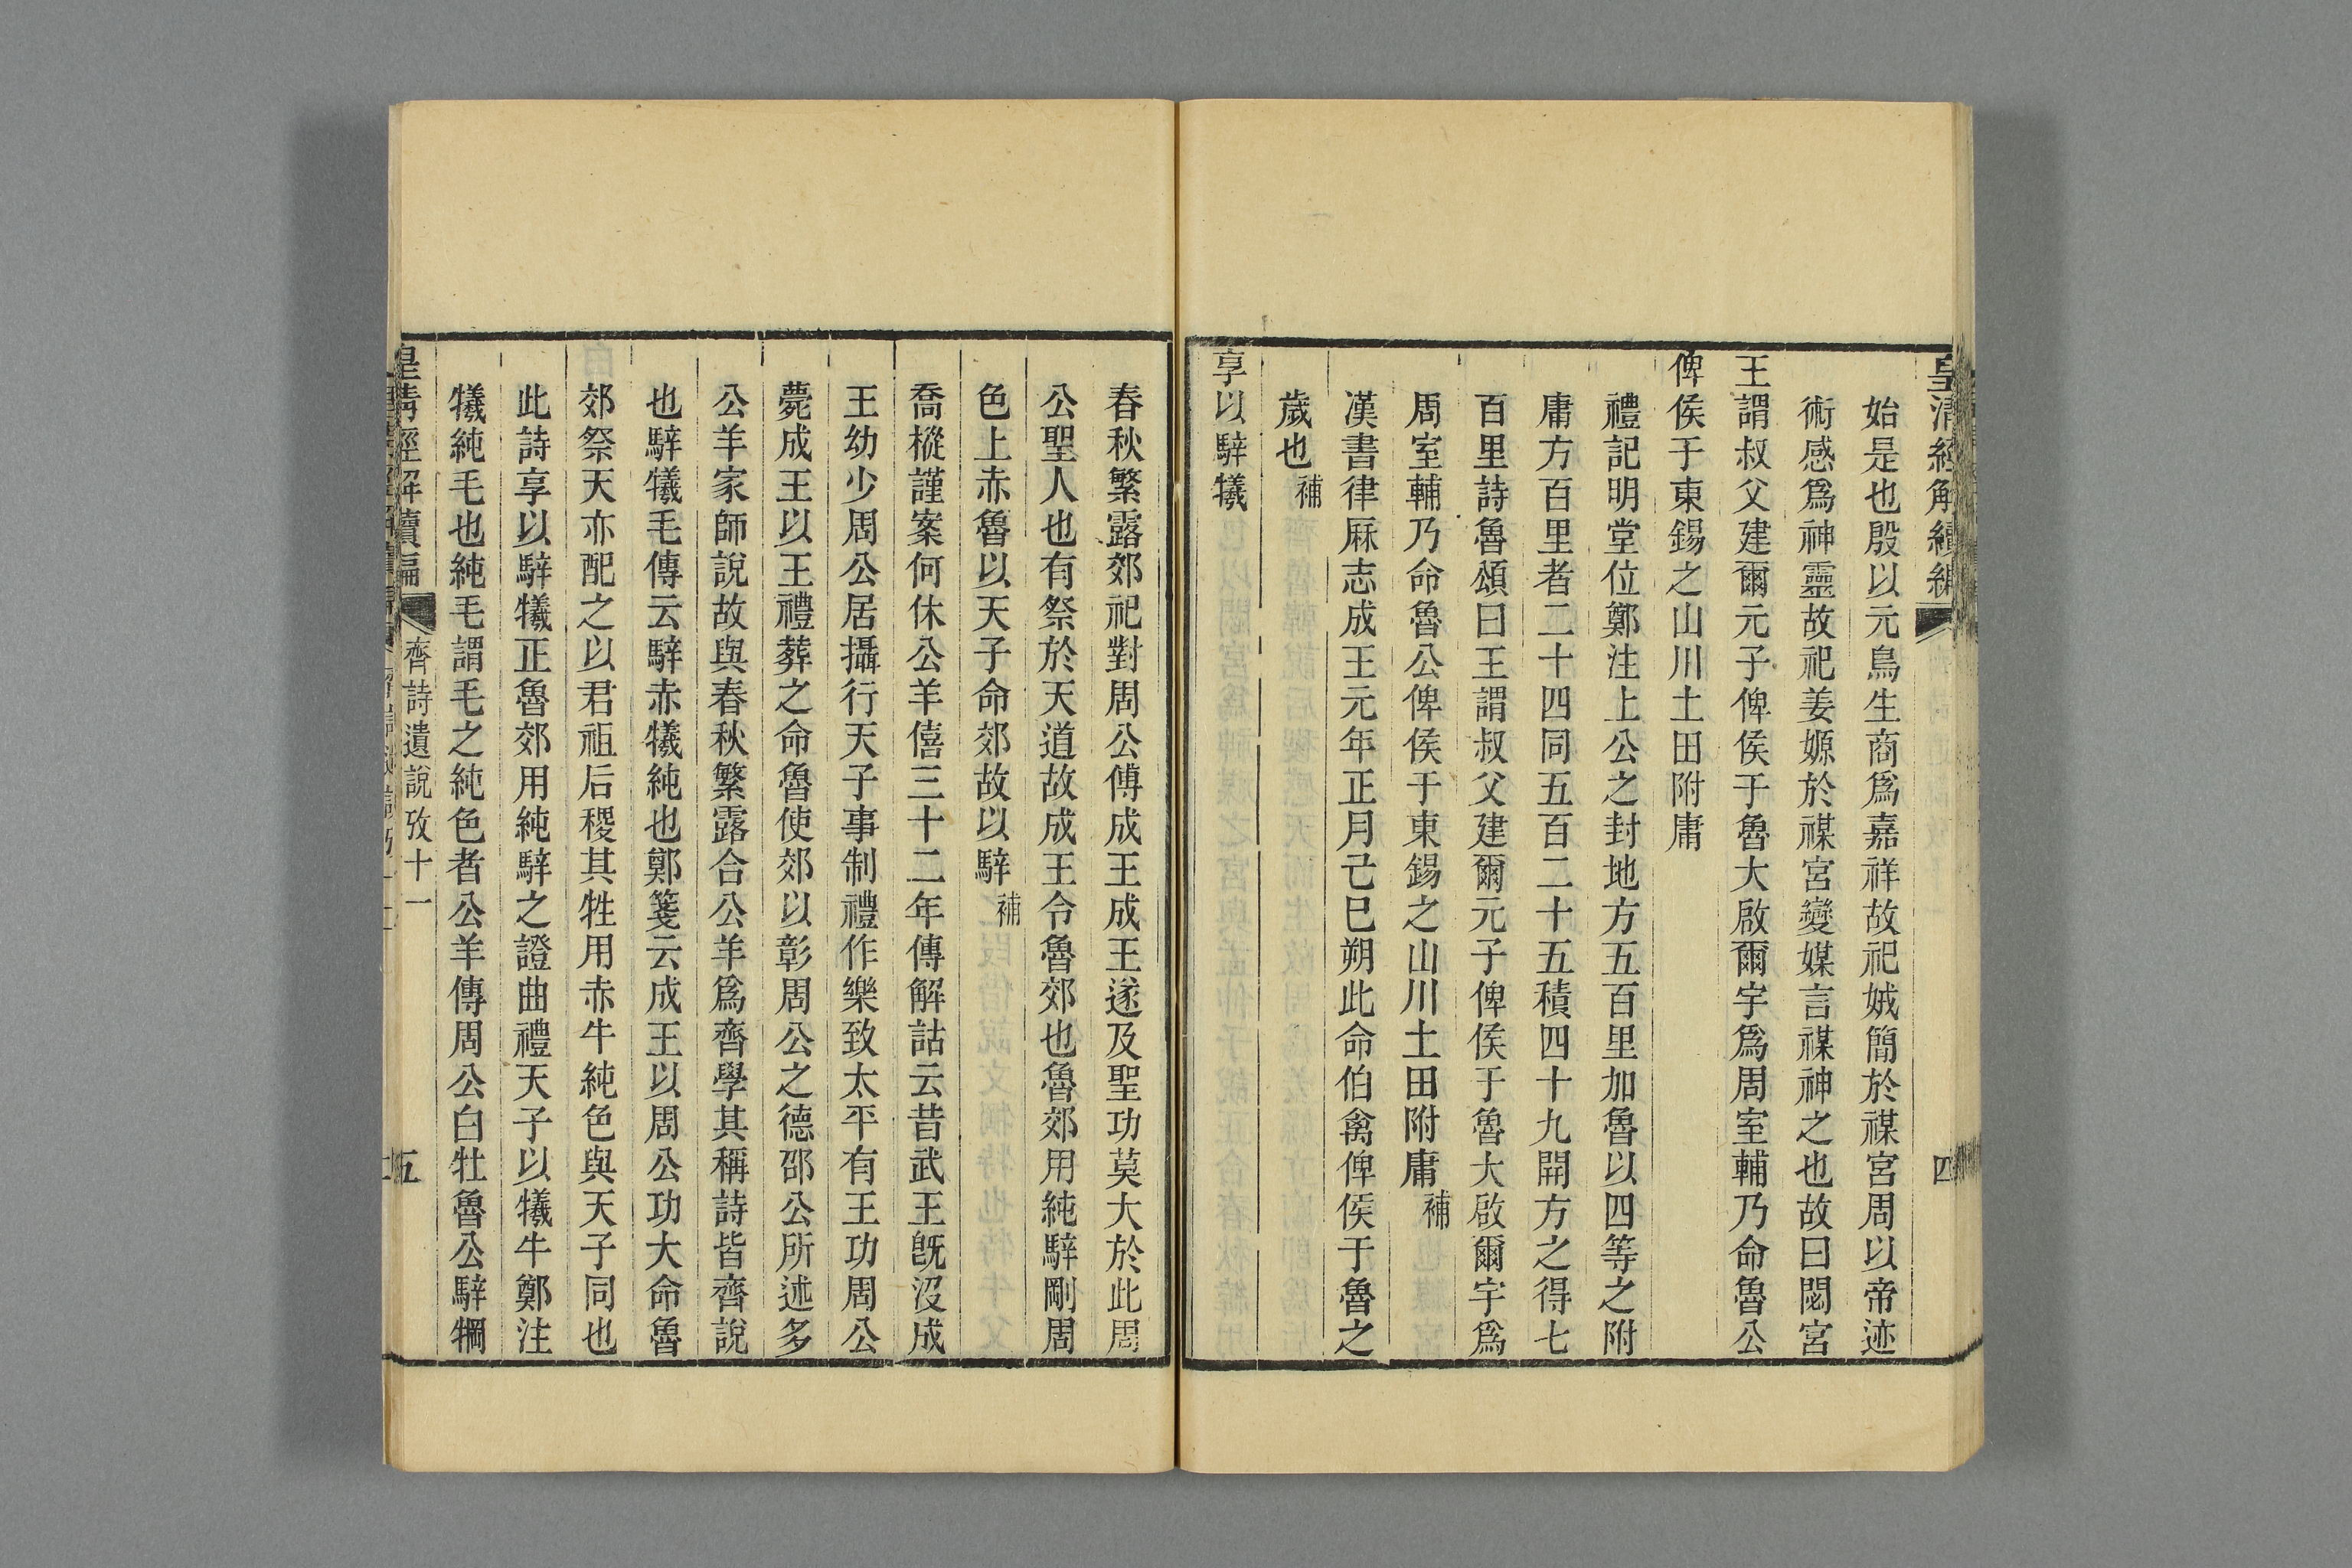 皇清經解續編
四
始是也殷以元鳥生商爲嘉祥故祀娀簡於禖宮周以帝迹
術感爲神靈故祀姜嫄於禖宮變媒言禖神之也故曰閟宮
王謂叔父建爾元子俾侯于魯大啟爾宇爲周室輔乃命魯公
俾侯于東錫之山川土田附庸
禮記明堂位鄭注上公之封地方五百里加魯以四等之附
庸方百里者二十四同五百二十五積四十九開方之得七
百里詩魯頌曰王謂叔父建爾元子俾侯于魯大啟爾宇爲
周室輔乃命魯公俾侯于東錫之山川土田附庸補
漢書律厤志成王元年正月己巳朔此命伯禽俾侯于魯之
歲也補
享以騂犧
春秋繁露郊祀對周公傅成王成王遂及聖功莫大於此周
公聖人也有祭於天道故成王令魯郊也魯郊用純騂剛周
色上赤魯以天子命郊故以騂補
喬樅謹案何休公羊僖三十二年傳解詁云昔武王旣沒成
王幼少周公居攝行天子事制禮作樂致太平有王功周公
薨成王以王禮葬之命魯使郊以彰周公之德邵公所述多
公羊家師說故與春秋繁露合公羊爲齊學其稱詩皆齊說
也騂犧毛傳云騂赤犧純也鄭箋云成王以周公功大命魯
郊祭天亦配之以君祖后稷其牲用赤牛純色與天子同也
此詩享以騂犧正魯郊用純騂之證曲禮天子以犧牛鄭注
犧純毛也純毛謂毛之純色者公羊傳周公白牡魯公騂犅
皇清經解續編
齊詩遺說攷十一
五